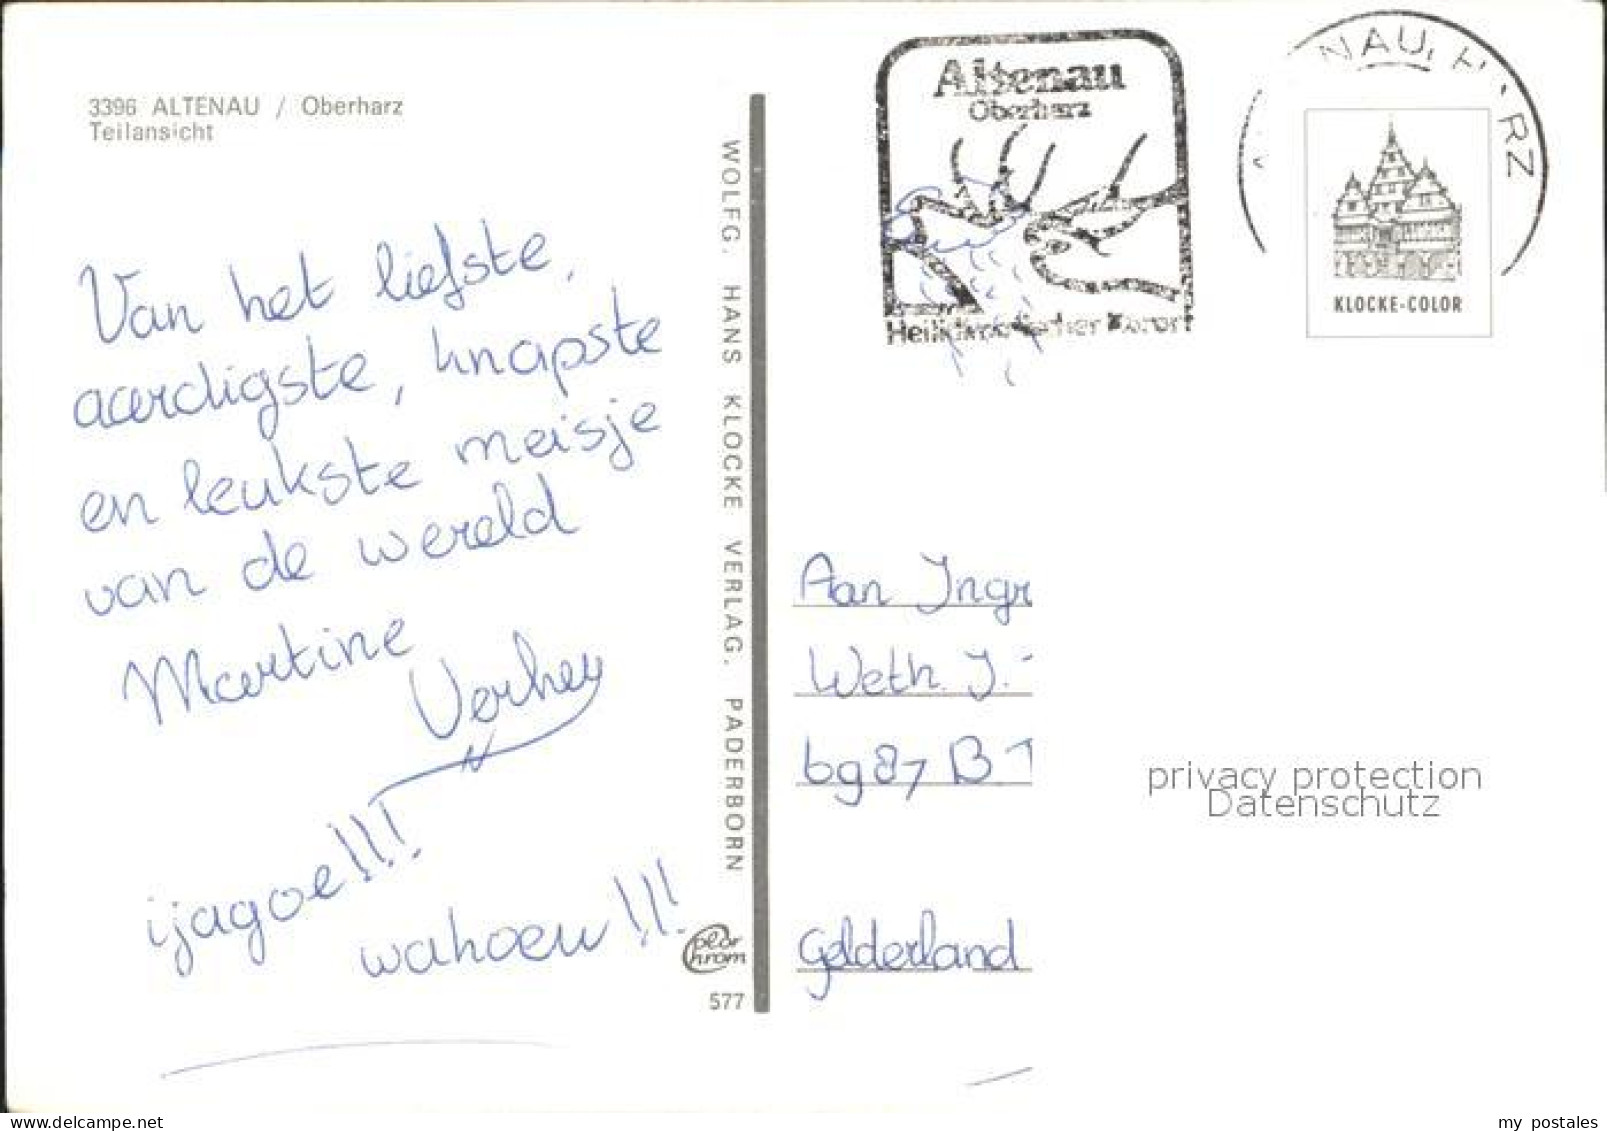 3396 ALTENAU / Oberharz
Teilansicht
Van het liefste,
aardigste, knapste
en leukste meisje
van de wereld
Martine
Verhey
ijagoe!!!
wahoeu!!!
WOLFG. HANS KLOCKE VERLAG, PADERBORN
Color
Chrom
577
Altenau
Oberharz
Heilklimatischer Kurort
NAU, H RZ
KLOCKE-COLOR
Aan Ingr
Weth. J.
6987 B
Gelderland
privacy protection
Datenschutz
www.delcampe.net
my postales